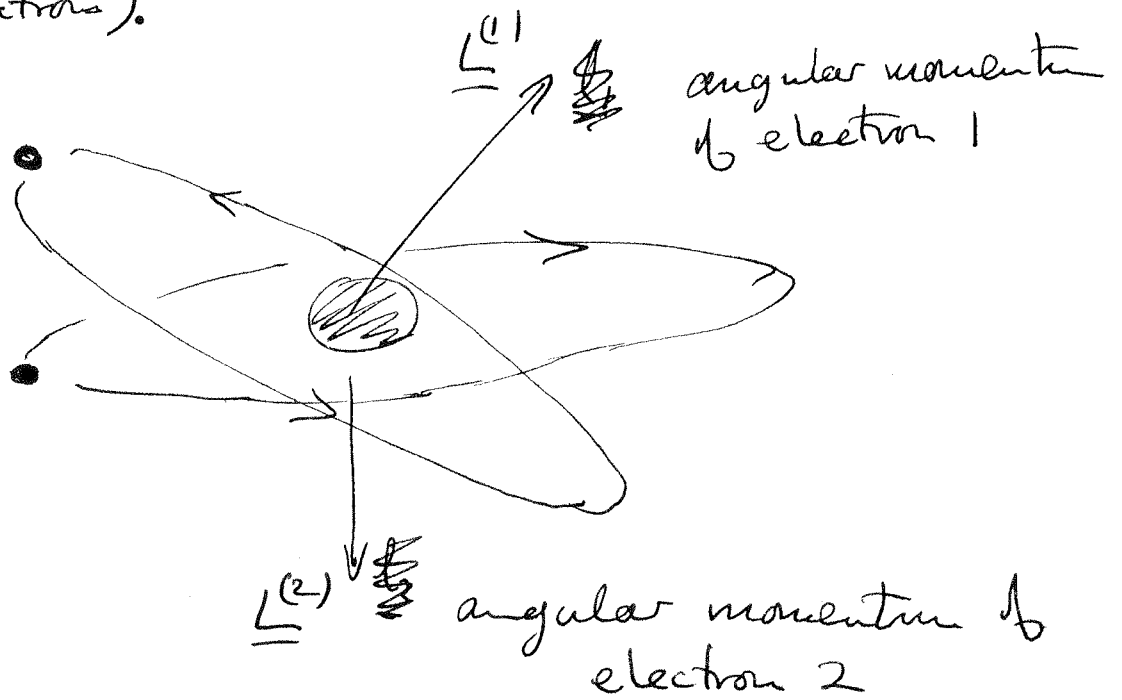 ctrons).
L^(1) angular momentum
of electron 1
L^(2) angular momentum of
electron 2